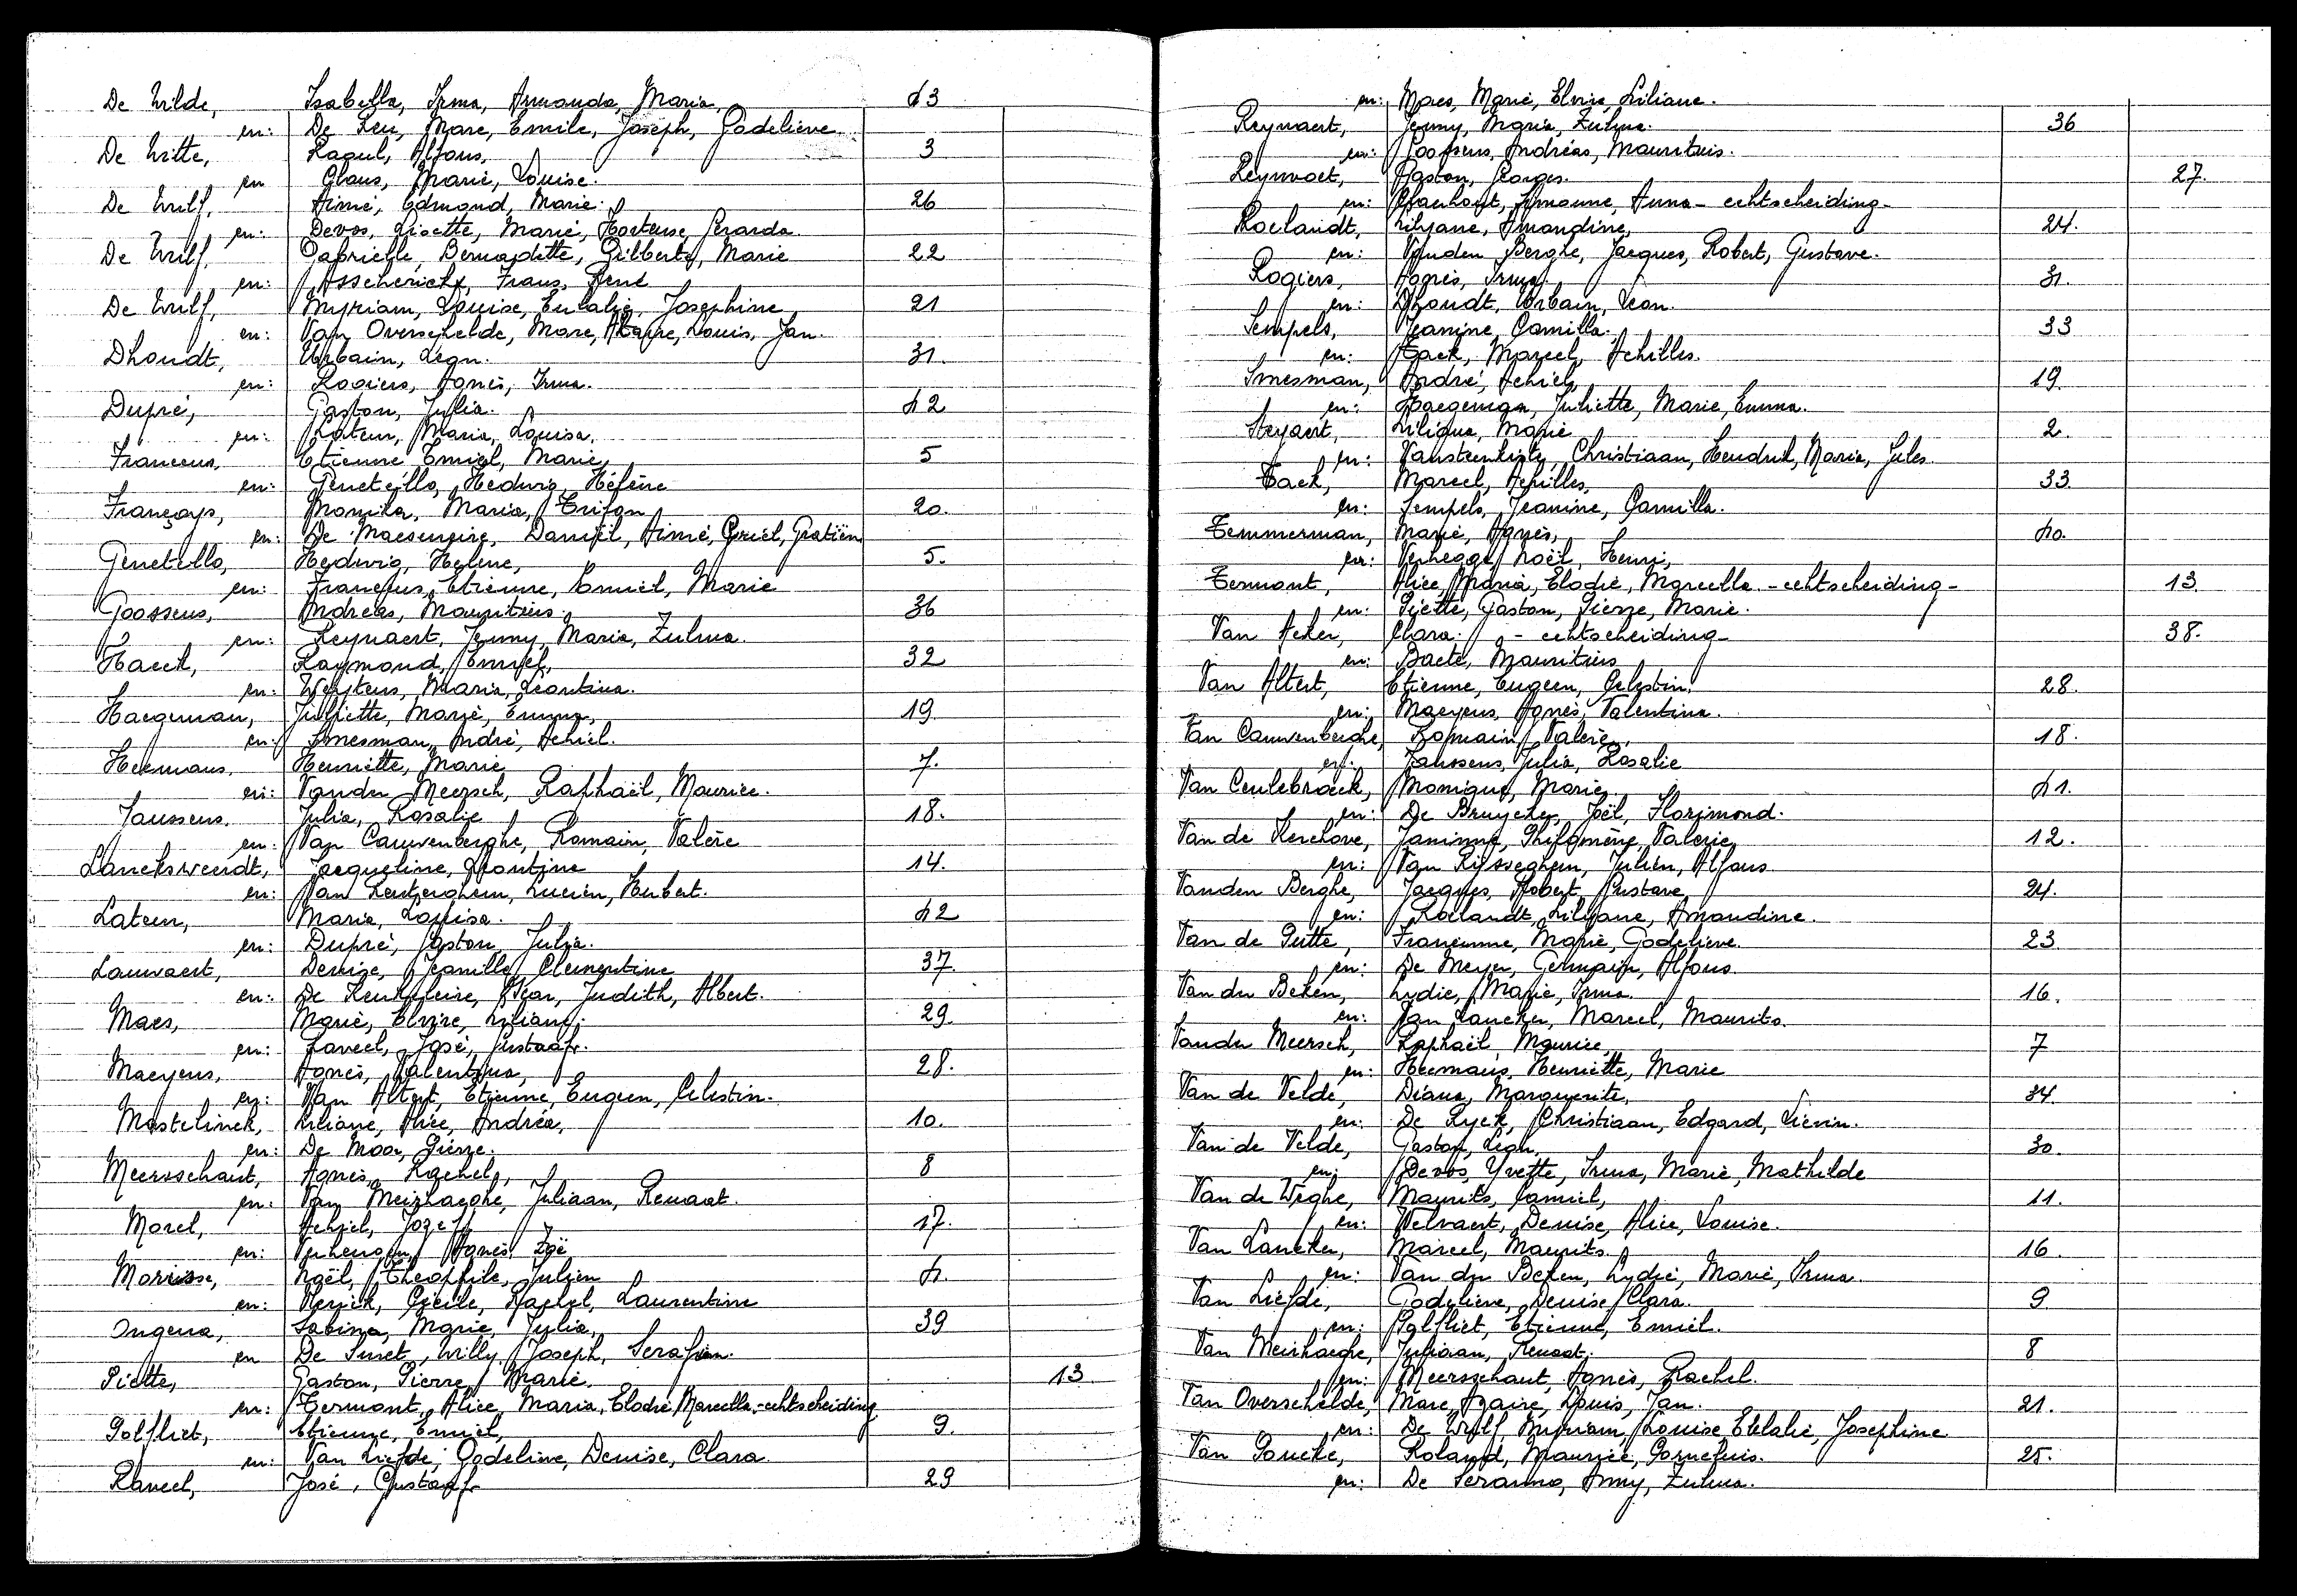 De Wilde, Isabella, Irma, Armanda, Maria, 43
en: De Leu, Marc, Emile, Joseph, Godelieve
De Witte, Raoul, Alfons, 3
en Claus, Marie, Louise.
De Wulf, Aimé, Edmond, Marie. 26
en: Devos, Lisette, Marie, Hortense, Gerarda
De Wulf, Gabrielle, Bernadette, Gilberte, Marie 22
en: Asscherickx, Frans, René
De Wulf, Myriam, Louise, Eulalie, Josephine 21
en: Van Overschelde, Marc, Hilaire, Louis, Jan.
Dhondt, Urbain, Leon. 31.
en: Rogiers, Agnès, Irma.
Dupré, Gaston, Julia. 42
en: Lateur, Maria, Louisa.
Francous, Etienne, Emiel, Marie 5
en: Genetello, Hedwig, Hélène
Françoys, Monika, Maria, Trifon 20.
en: De Maeseneire, Daniël, Aimé, Cyriel, Gratiën
Genetello, Hedwig, Helene, 5.
en: Francous, Etienne, Emiel, Marie
Goossens, Andréas, Mauritius. 36
en: Reynaert, Jenny, Maria, Zulma.
Haeck, Raymond, Emiel, 32
en: Weytens, Maria, Leontina.
Haegeman, Juliette, Marie, Emma, 19
en: Smesman, André, Achiel.
Heemans, Henriette, Marie 7.
en: Vander Meersch, Raphaël, Maurice.
Janssens, Julia, Rosalie 18.
en: Van Cauwenberghe, Romain, Valère
Lanckswerdt, Jacqueline, Leontine 14.
en: Van Lentzeghem, Lucien, Hubert.
Lateur, Maria, Louisa. 42
en: Dupré, Gaston, Julia.
Lauwaert, Denise, Camilla, Clementine 37.
en: De Keukeleire, Ivan, Judith, Albert.
Maes, Marie, Elvire, Liliane. 29.
en: Raveel, José, Gustaaf.
Maeyens, Agnès, Valentina, 28.
en: Van Altert, Etienne, Eugeen, Celestin.
Mastelinck, Liliane, Alice, Andréa, 10.
en: De Moor, Pierre.
Meersschaut, Agnès, Rachel, 8
en: Van Meirhaeghe, Juliaan, Renaat.
Morel, Achiel, Jozef 17.
en: Verhengen, Agnès, Zoë
Morisse, Noël, Theophile, Julien 4.
en: Cécile, Rachel, Laurentine
Ongena, Sabina, Marie, Julia, 39
en De Smet, Willy, Joseph, Serafien.
Piette, Gaston, Pierre, Marie. 13
en: Termont, Alice, Maria, Elodie, Marcella, - echtscheiding
Polfliet, Etienne, Emiel, 9.
en: Van Liefde, Godelieve, Denise, Clara
Raveel, José, Gustaaf. 29
en: Maes, Marie, Elvire, Liliane.
Reynaert, Jenny, Maria, Zulma. 36
en: Goossens, Andréas, Mauritius.
Reynvoet, Gaston, Georges. 27.
en: Simonne, Anna - echtscheiding -
Roelandt, Lilyane, Amandine, 24.
en: Vanden Berghe, Jacques, Robert, Gustave.
Rogiers, Agnès, Irma. 31.
en: Dhondt, Urbain, Leon.
Sempels, Jeanine, Camilla. 33
en: Tack, Marcel, Achilles.
Smesman, André, Achiel, 19.
en: Haegeman, Juliette, Marie, Emma.
Steyaert, Liliane, Marie 2.
en: Vansteenkiste, Christiaan, Hendrik, Maria, Jules
Tack, Marcel, Achilles, 33
en: Sempels, Jeanine, Camilla.
Temmerman, Marie, Agnès, 40.
en: Verhegge, Noël, Henri,
Termont, Alice, Maria, Elodie, Marcella - echtscheiding - 13
en: Piette, Gaston, Pierre, Marie.
Van Acker, Clara. - echtscheiding - 38.
en: Baete, Mauritius
Van Altert, Etienne, Eugeen, Celestin. 28.
en: Maeyens, Agnès, Valentina.
Van Cauwenberghe, Romain, Valère, 18.
en: Janssens, Julia, Rosalie
Van Ceulebroeck, Monique, Marie. 41.
en: De Bruycker, Joël, Florimond.
Van de Kerchove, Jeannine, Philomène, Valerie 12.
en: Van Rysseghem, Julien, Alfons
Vanden Berghe, Jacques, Robert, Gustave 24.
en: Roelandt, Lilyane, Amandine.
Van de Putte, Francienne, Marie, Godelieve. 23.
en: De Meyer, Germain, Alfons
Van der Beken, Lydie, Marie, Irma. 16.
en: Van Lancker, Marcel, Maurits.
Vander Meersch, Raphaël, Maurice, 7
en: Heemans, Henriette, Marie
Van de Velde, Diana, Marguerite, 34.
en: De Ryck, Christiaan, Edgard, Lievin.
Van de Velde, Gaston, Leon, 30
en: Devos, Yvette, Irma, Marie, Mathilde
Van de Weghe, Maurits, Camiel, 11.
en: Velvaert, Denise, Alice, Louise.
Van Lancker, Marcel, Maurits. 16.
en: Van der Beken, Lydie, Marie, Irma
Van Liefde, Godelieve, Denise, Clara. 9
en: Polfliet, Etienne, Emiel.
Van Meirhaeghe, Juliaan, Renaat. 8
en: Meersschaut, Agnès, Rachel.
Van Overschelde, Marc, Hilaire, Louis, Jan. 21.
en: De Wulf, Myriam, Louise, Eulalie, Josephine
Van Poucke, Roland, Maurice, Cornelius. 25.
en: De Seranno, Anny, Zulma.